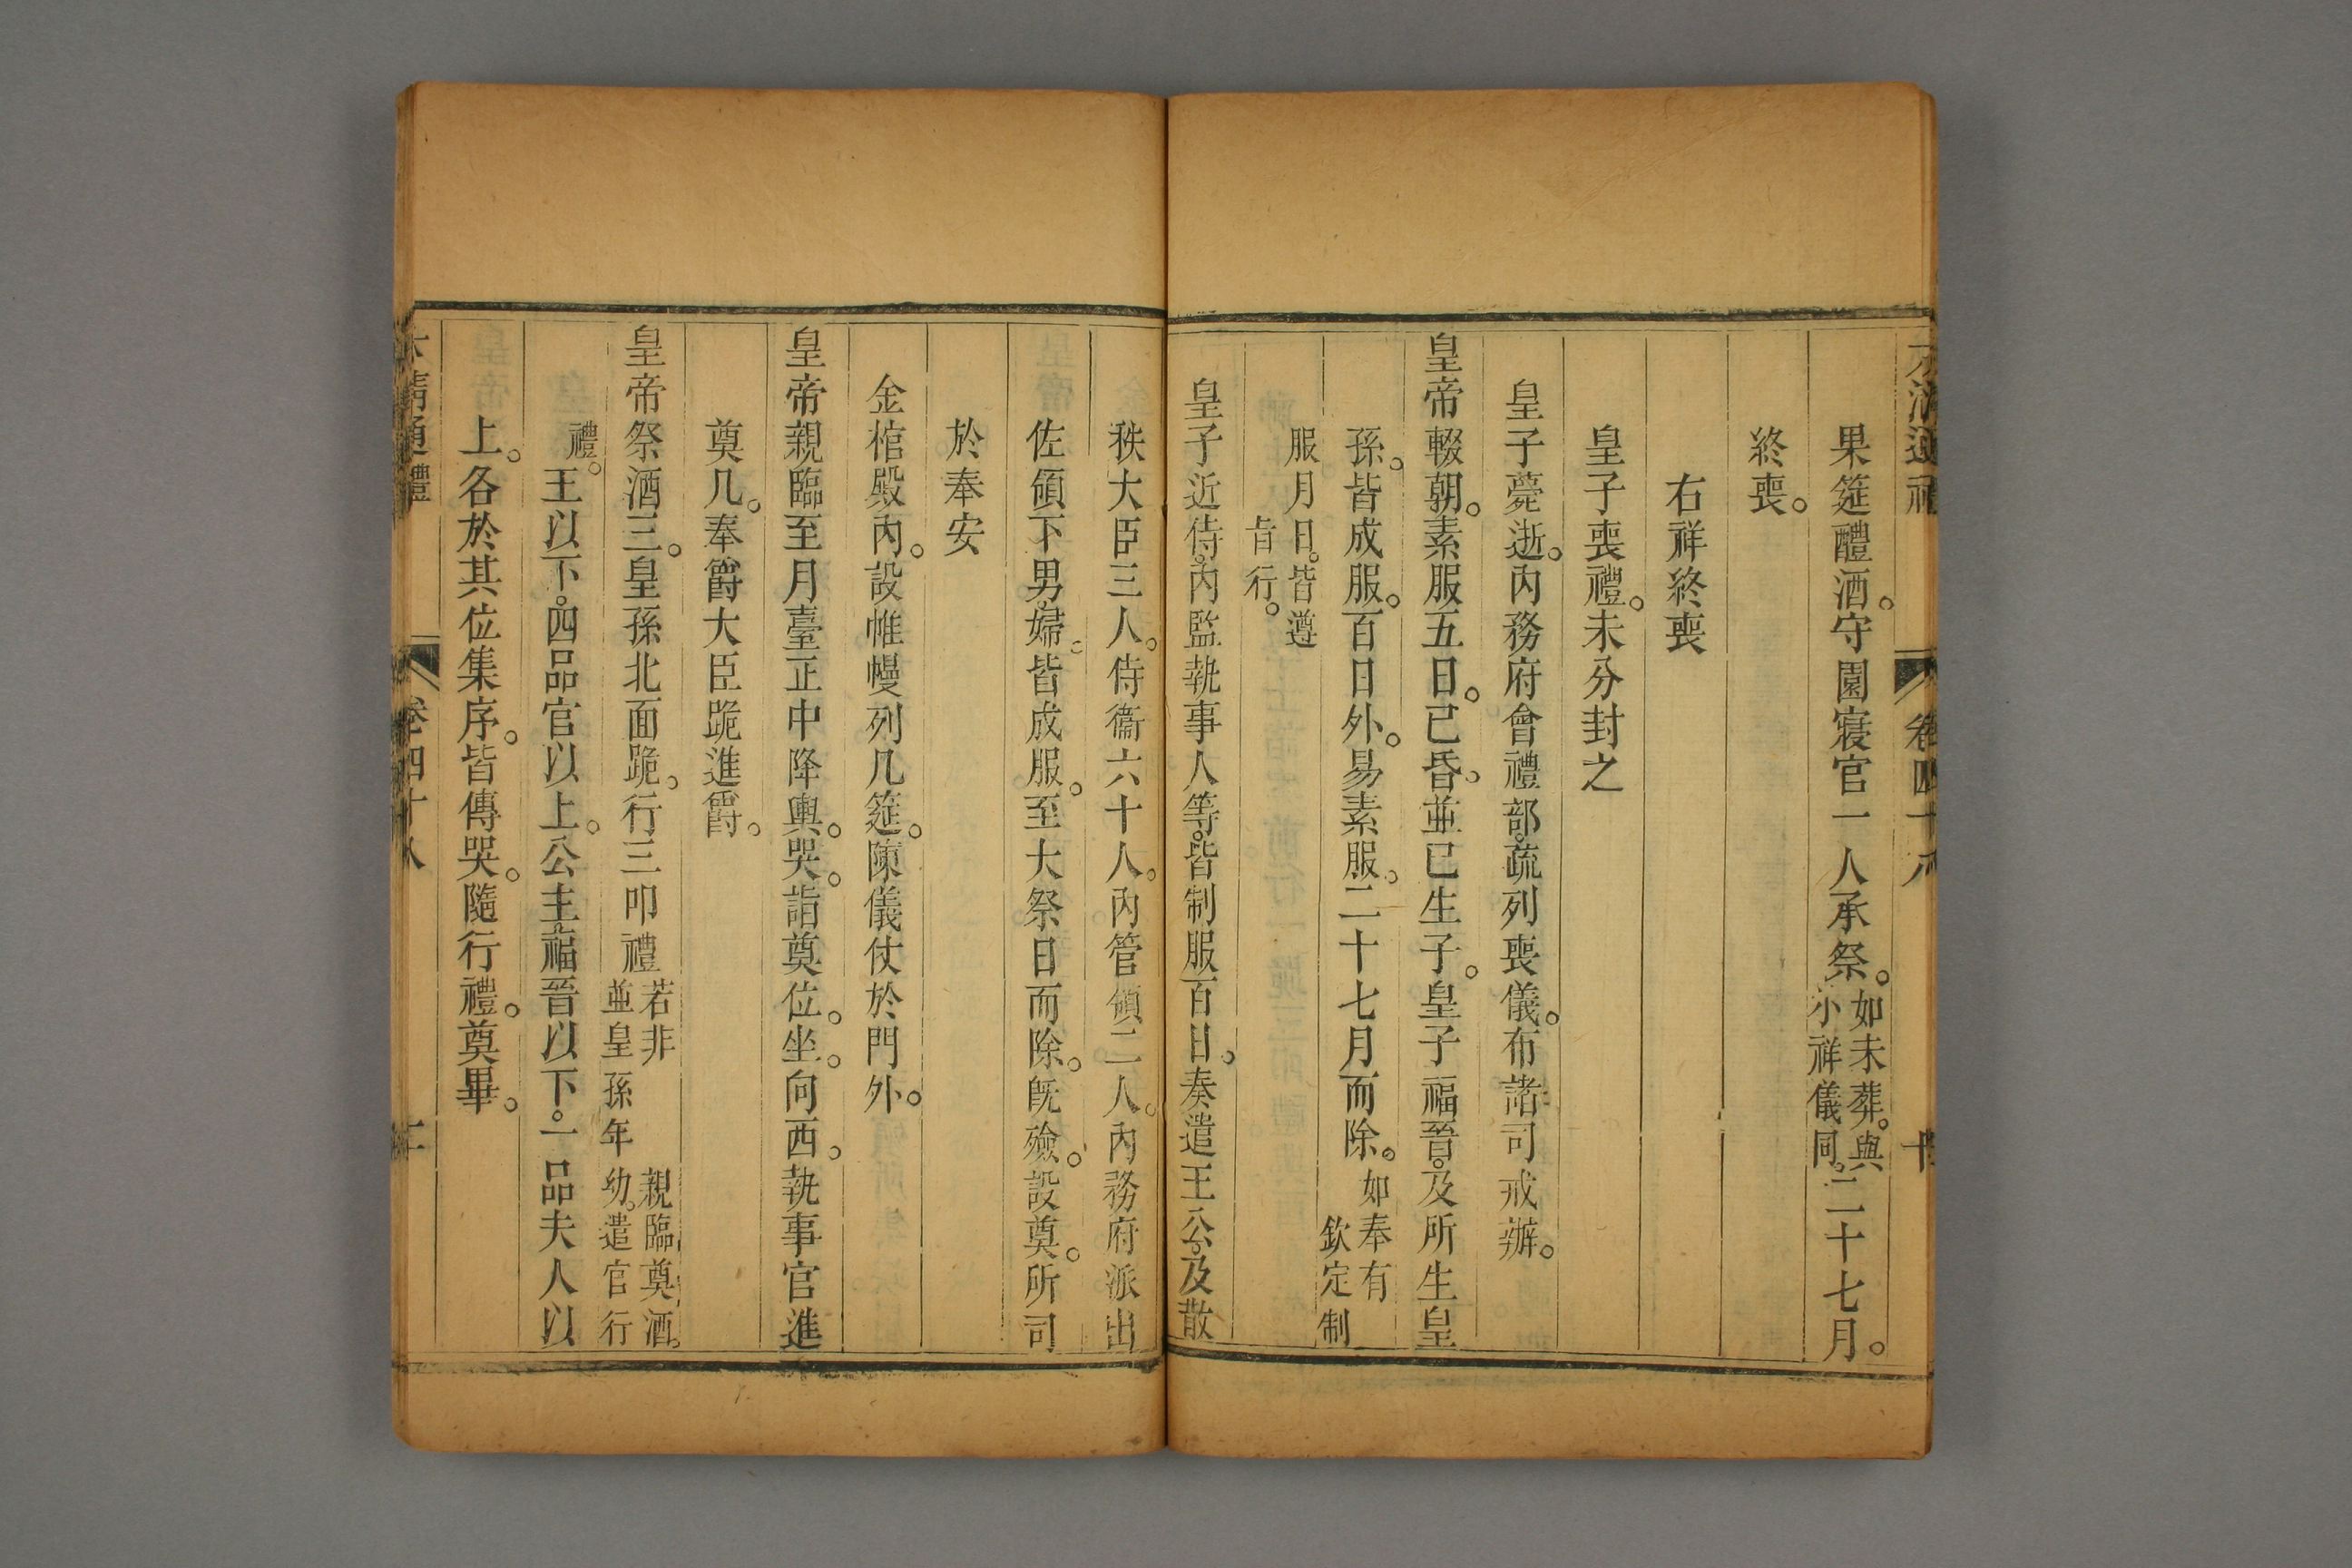 大清通禮 卷四十八 十
果筵醴酒。守園寢官一人承祭。如未葬。與小祥儀同。二十七月。
終喪。
右祥終喪
皇子喪禮。未分封之
皇子薨逝。內務府會禮部。疏列喪儀。布諸司戒辦。
皇帝輟朝。素服五日。已昏。並已生子。皇子福晉。及所生皇
孫。皆成服。百日外。易素服。二十七月而除。如奉有欽定制
服月日。皆遵旨行。
皇子近侍。內監執事人等。皆制服百日。奏遣王公。及散
秩大臣三人。侍衞六十人。內管領二人。內務府派出
佐領下男。婦。皆成服。至大祭日而除。旣殮。設奠。所司
於奉安
金棺殿內。設帷幔列几筵。陳儀仗於門外。
皇帝親臨至月臺正中降輿。哭。詣奠位。坐。向西。執事官進
奠几。奉爵大臣跪進爵。
皇帝祭酒三。皇孫北面跪。行三叩禮若非親臨奠酒。並皇孫年幼。遣官行
禮。王以下。四品官以上。公主福晉以下。一品夫人以
上。各於其位集序。皆傳哭。隨行禮。奠畢。
大清通禮 卷四十八